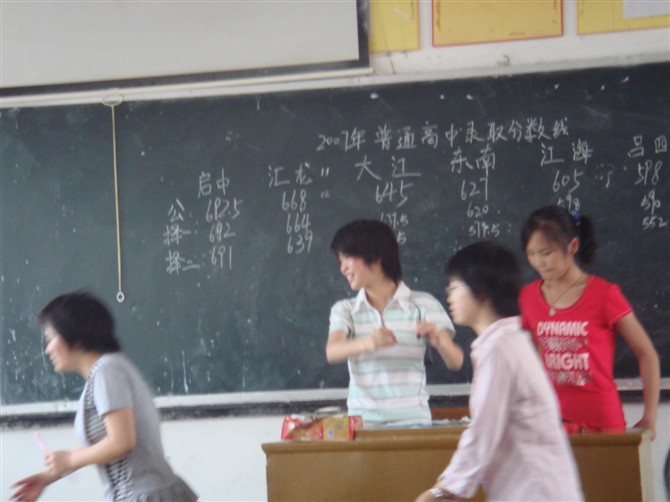 2007年普通高中录取分数线
启中 汇龙 大江 东南 江海 吕四
公: 692.5 668 645 627 605 598
择一 692 664 620 598 590
择二: 691 639 552
DYNAMIC
BRIGHT